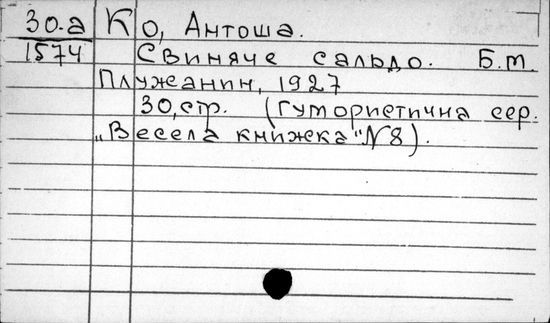 30.а Ко, Антоша.
1574 Свиняче сальдо. Б.м.
Плужанин, 1927
30, стр. (гумористична сер.
„Весела книжка" №8).